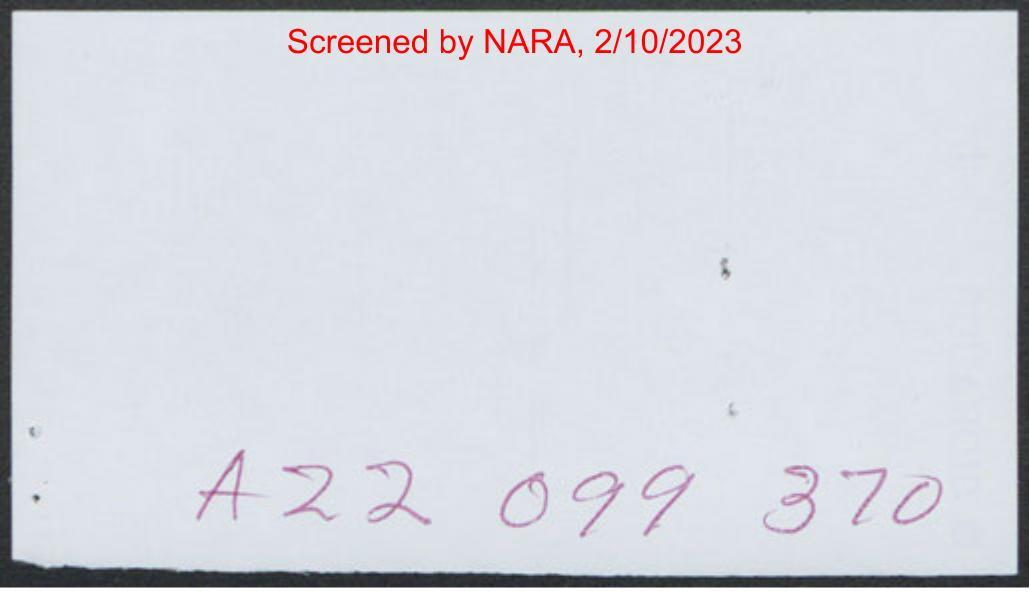 Screened by NARA, 2/10/2023
A22 099 370